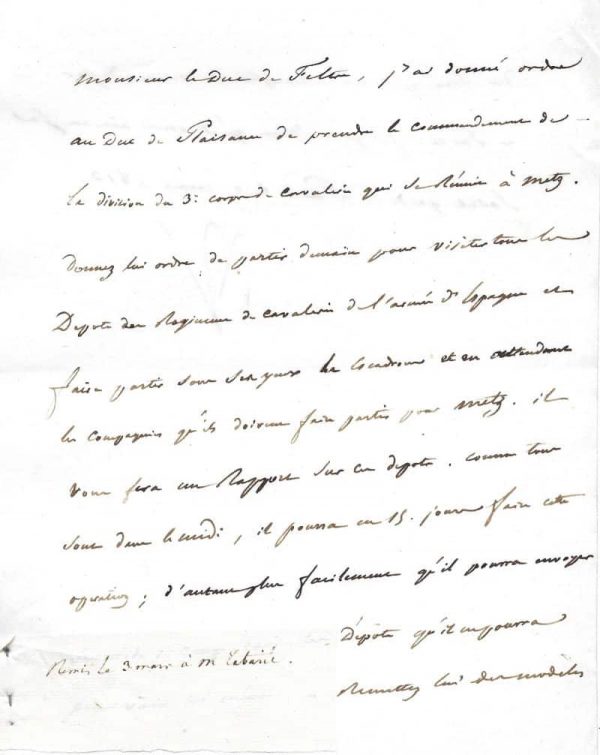 Monsieur le Duc de Feltre, j'ai donné ordre
au Duc de Plaisance de prendre le commandement de
la division du 3e corps de cavalerie qui se Réunie à Metz.
Donnez lui ordre de partir demain pour visiter tous les
Depots des Regimens de cavalerie de l'armée d'Espagne et
faire partir sous ses yeux les Escadrons et en attendant
les compagnies qu'ils doivent faire partir pour Metz. il
vous fera un Rapport sur ces depots. comme tous
sont dans le midi, il pourra en 15. jours faire cette
operation; d'autant plus facilement qu'il pourra envoyer
Dépôts qu'il en pourra
Remettez lui des modèles
Remis le 3 mars à Mr Tabarié.